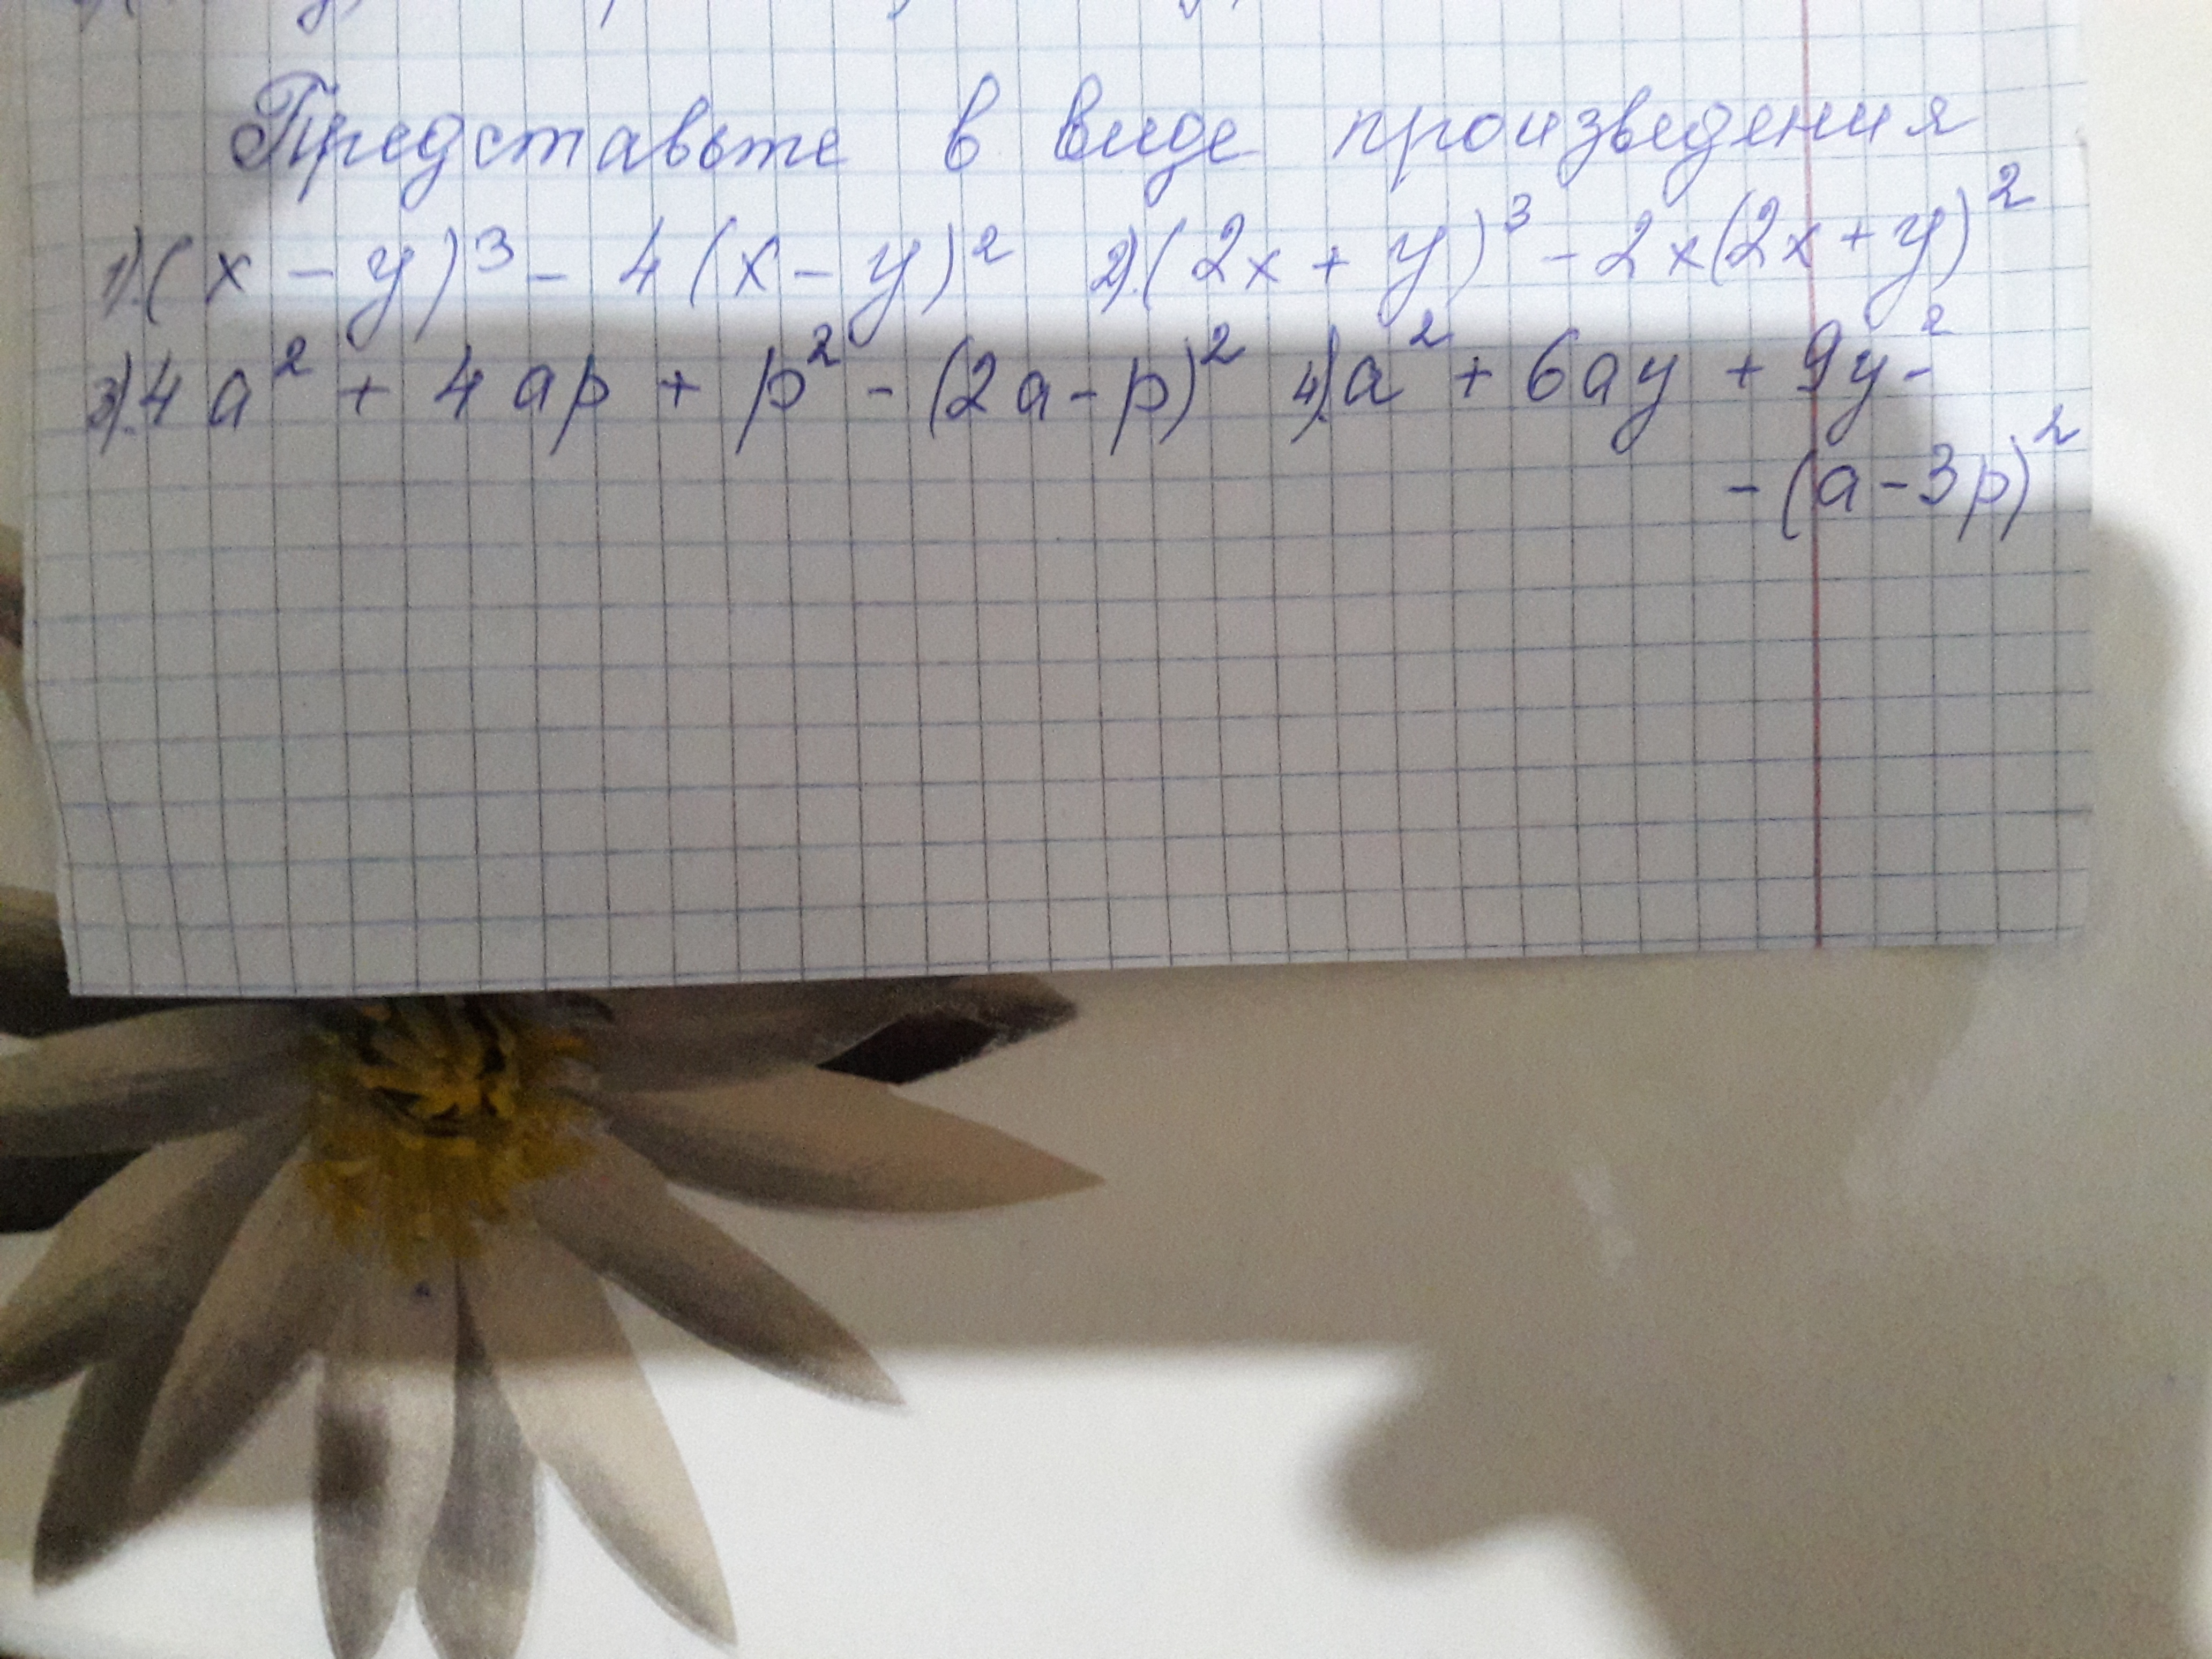 Представьте в виде произведения
1).(x - y)³ - 4(x - y)² 2).(2x + y)³ - 2x(2x + y)²
3).4a² + 4ap + p² - (2a - p)² 4).a² + 6ay + 9y² -
- (a - 3p)²